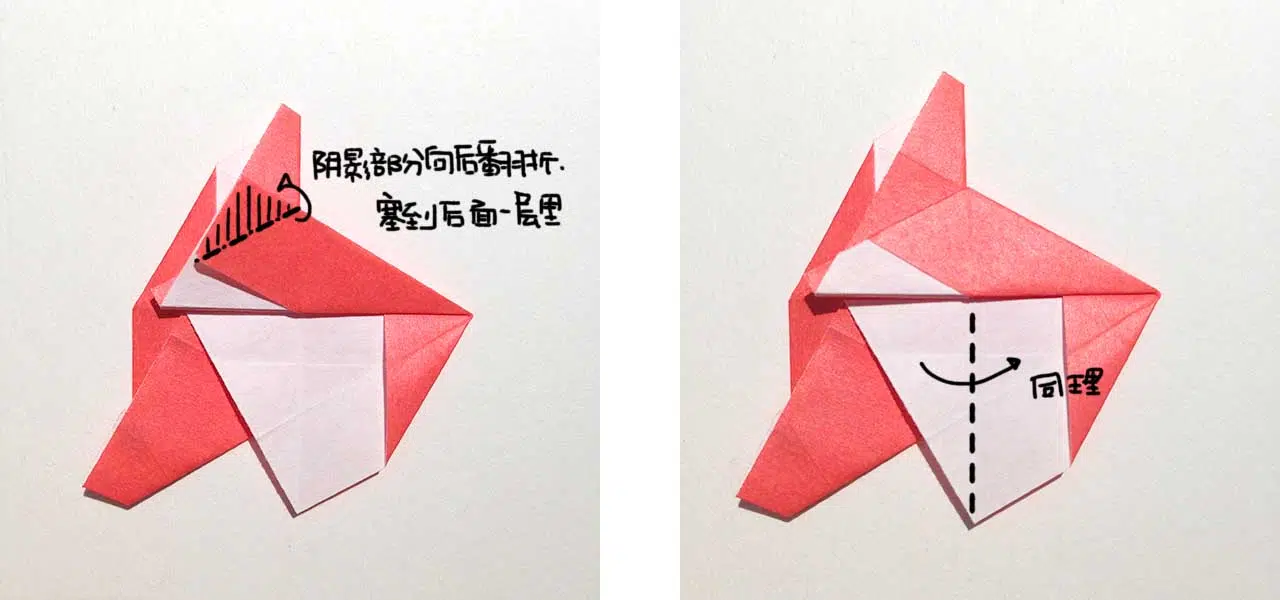 阴影部分向后翻折.
塞到后面一层里
同理